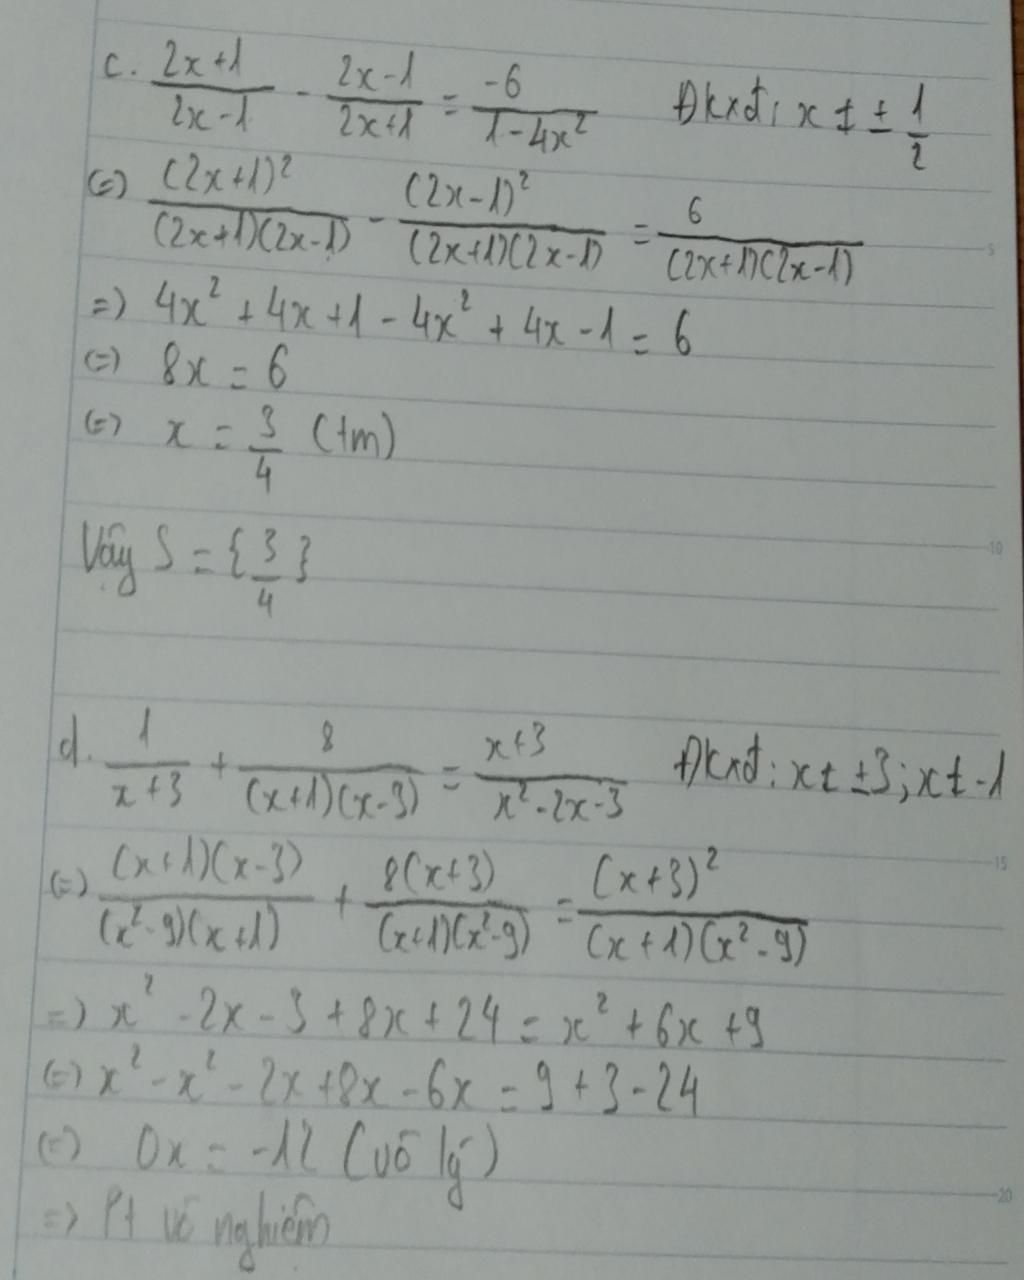 c. \frac{2x+1}{2x-1} - \frac{2x-1}{2x+1} = \frac{-6}{1-4x²} Đkxđ: x ≠ ± \frac{1}{2}
(=) \frac{(2x+1)²}{(2x+1)(2x-1)} - \frac{(2x-1)²}{(2x+1)(2x-1)} = \frac{6}{(2x+1)(2x-1)}
=) 4x² + 4x + 1 - 4x² + 4x - 1 = 6
(=) 8x = 6
(=) x = \frac{3}{4} (tm)
Vậy S = { \frac{3}{4} }
d. \frac{1}{x+3} + \frac{8}{(x+1)(x-3)} = \frac{x+3}{x²-2x-3} Đkxđ: x ≠ ±3; x ≠ -1
(=) \frac{(x+1)(x-3)}{(x²-9)(x+1)} + \frac{8(x+3)}{(x+1)(x²-9)} = \frac{(x+3)²}{(x+1)(x²-9)}
=) x² - 2x - 3 + 8x + 24 = x² + 6x + 9
(=) x² - x² - 2x + 8x - 6x = 9 + 3 - 24
(=) 0x = -12 (vô lý)
=) Pt vô nghiệm
5
10
15
20